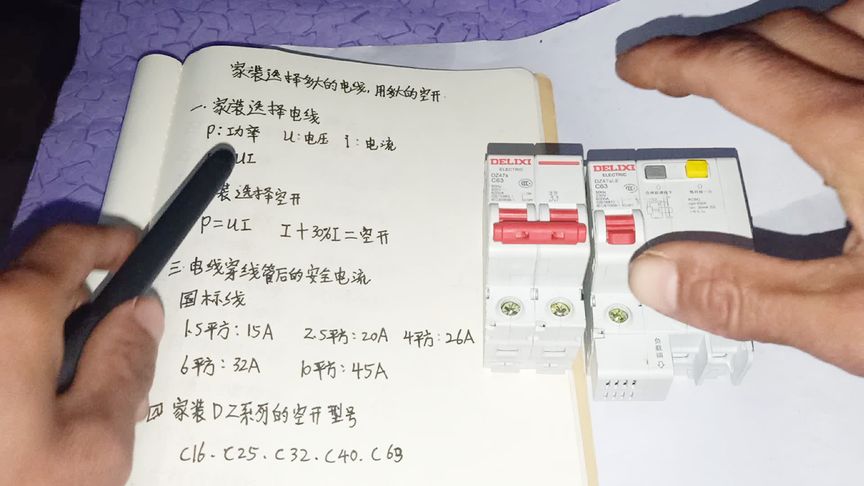 家装选择多大的电线,用多大的空开.
一.家装选择电线
P:功率 U:电压 i:电流
UI
装选择空开
P=UI I+30%I=空开
三.电线穿线管后的安全电流
国标线
1.5平方:15A 2.5平方:20A 4平方:26A
6平方:32A 10平方:45A
四 家装DZ系列的空开型号
C16. C25. C32. C40. C63
DELIXI
ELECTRIC
DZ47s
C63
DELIXI
ELECTRIC
DZ47sLE
C63
负载端